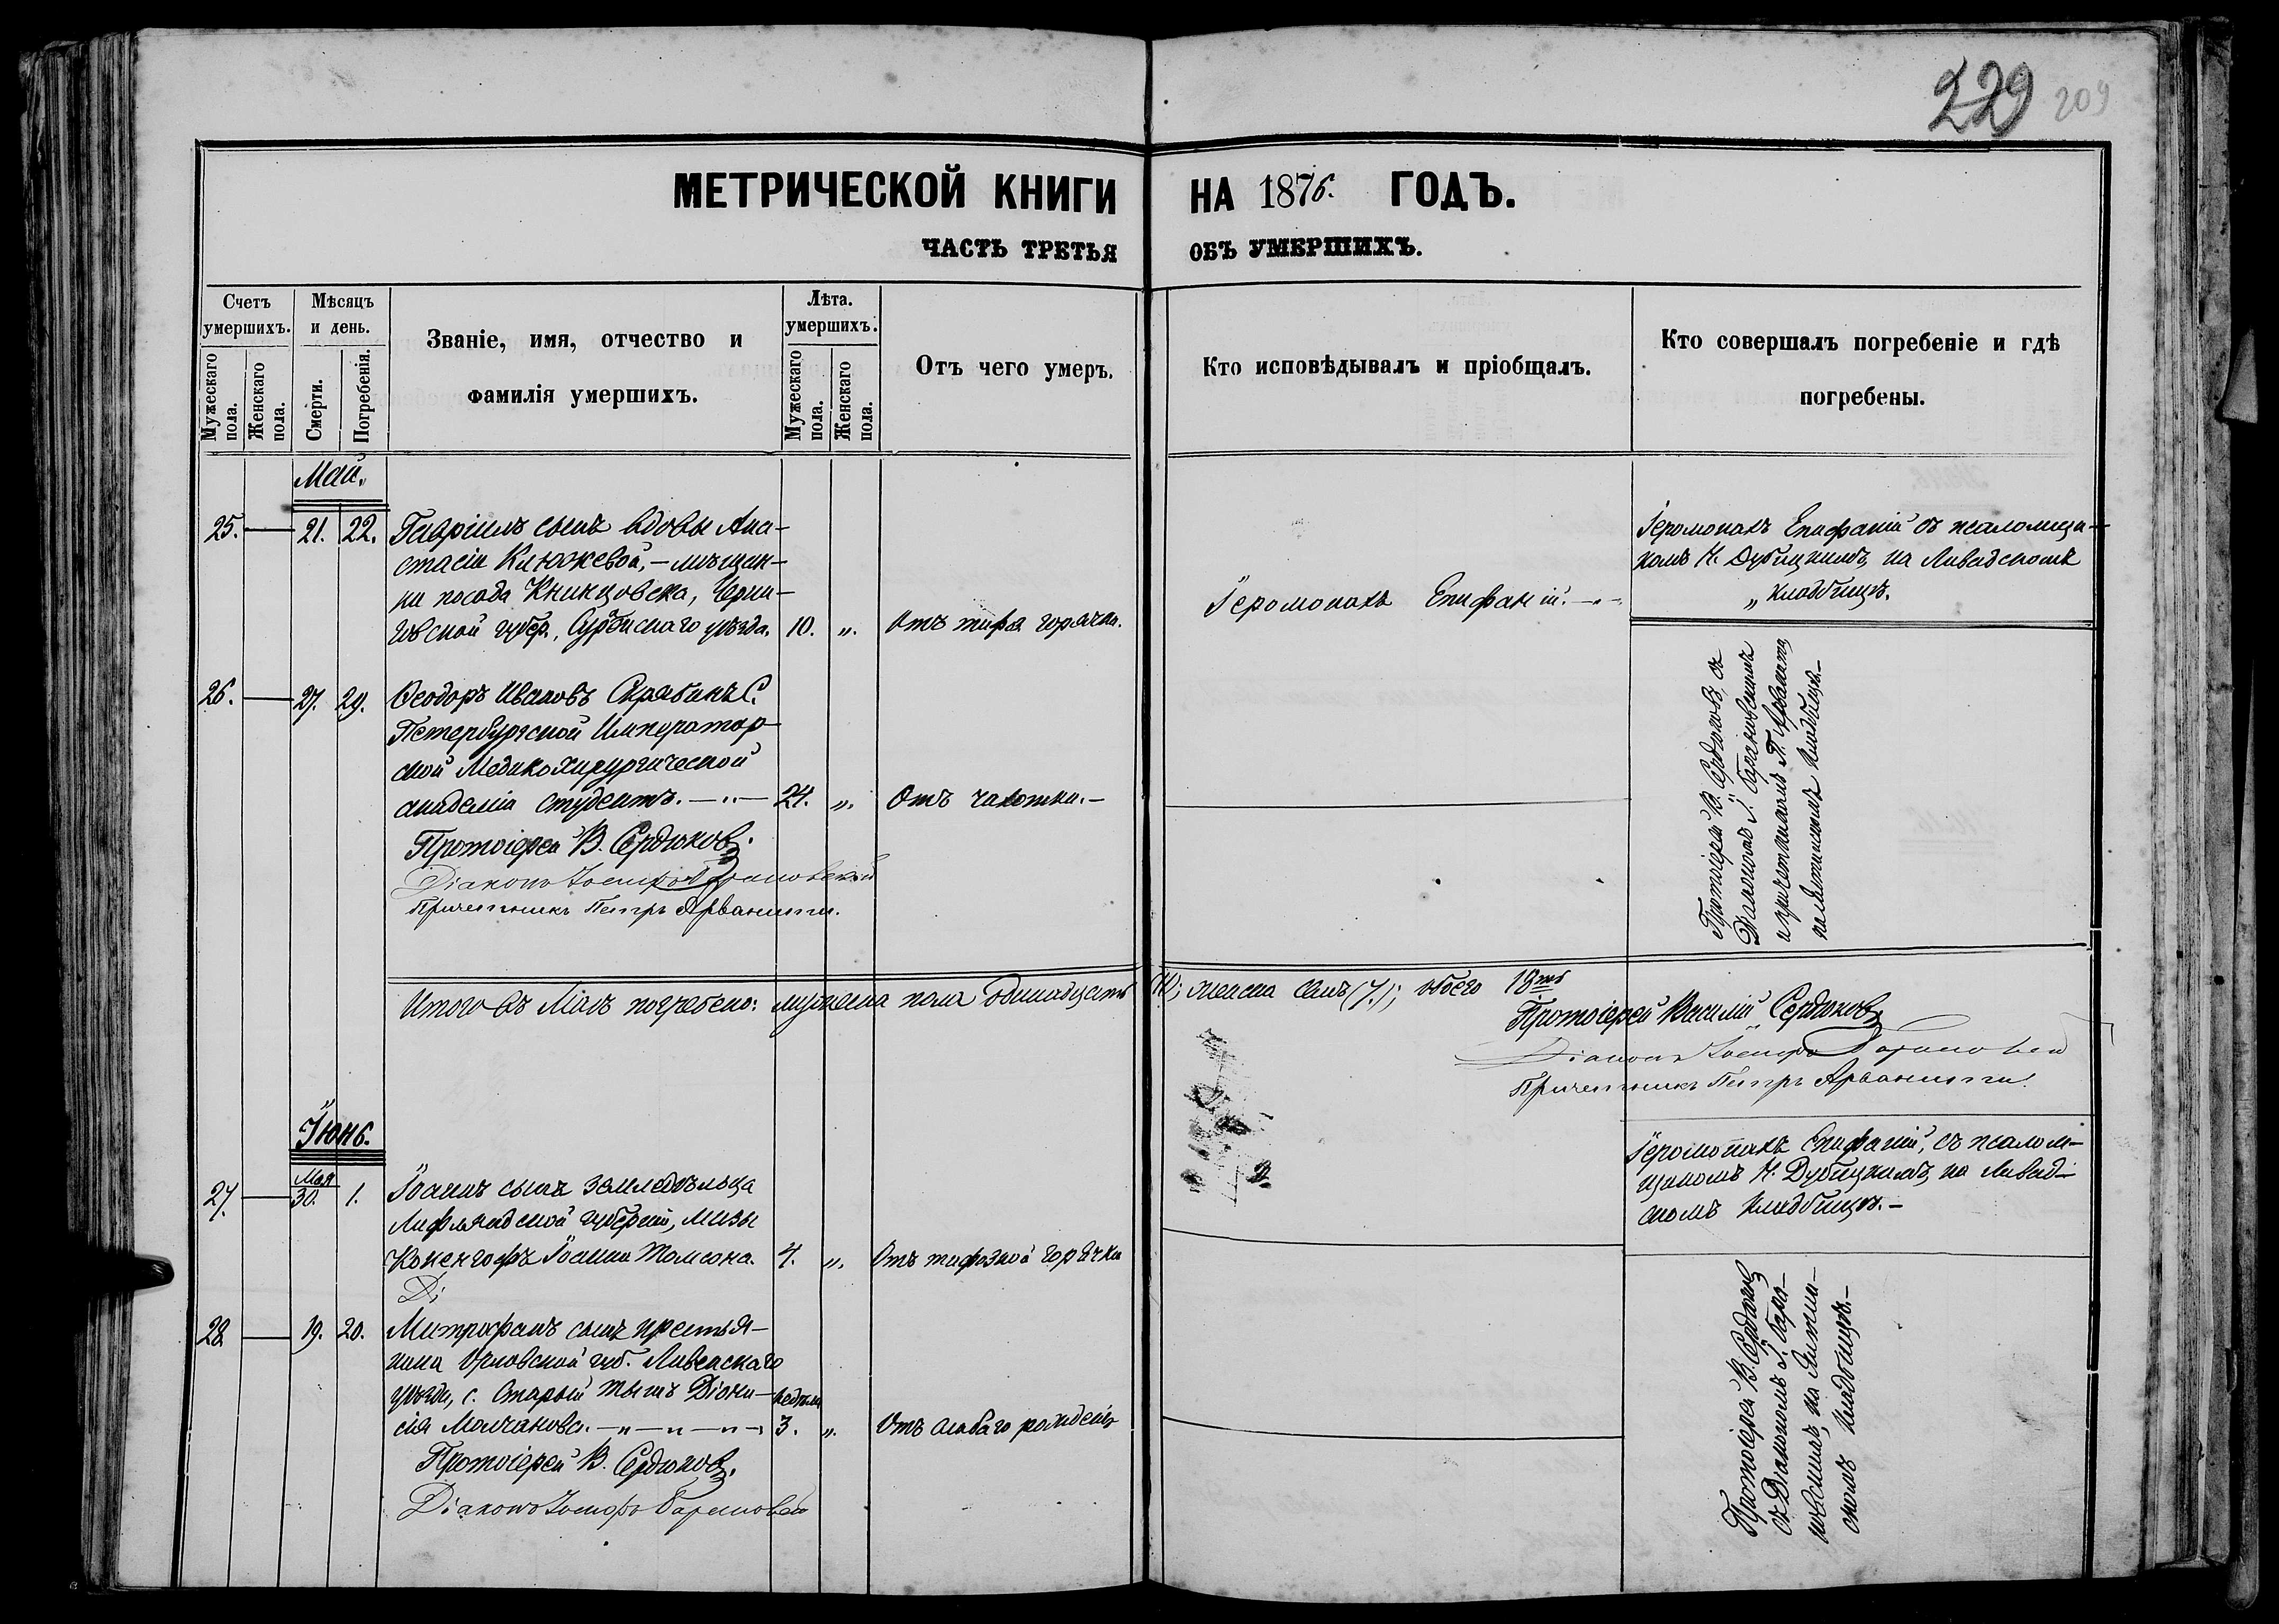 229 209
МЕТРИЧЕСКОЙ КНИГИ НА 1876. ГОДЪ.
ЧАСТЬ ТРЕТЬЯ ОБЪ УМЕРШИХЪ.
Счетъ умершихъ.
Мужескаго пола.
Женскаго пола.
Мѣсяцъ и день.
Смерти.
Погребенія.
Званіе, имя, отчество и
фамилія умершихъ.
Лѣта. умершихъ.
Мужескаго пола.
Женскаго пола.
Отъ чего умеръ.
Кто исповѣдывалъ и пріобщалъ.
Кто совершалъ погребеніе и гдѣ
погребены.
Май.
25. 21. 22. Гавріилъ сынъ вдовы Ана-
стасіи Клюжевой, – мѣщан-
ки посада Клинцовска, Черни-
говской губер., Суражскаго уѣзда. 10. „ Отъ тифа горячки.
Іеромонахъ Епифаній.
Іеромонахъ Епифаній съ псаломщи-
комъ Н. Дубицкимъ, на Ливадскомъ
„ кладбищѣ.
26. 27. 29. Ѳеодоръ Ивановъ Скрябинъ С.
Петербургской Император-
ской Медикохирургической
академіи студентъ. — „ — 24. „ Отъ чахотки. –
Протоіерей В. Сердюковъ.
Діаконъ Іосифъ Барановскій
Причетникъ Петръ Арванити.
Протоіерей В. Сердюковъ, съ
Діакономъ І. Барановскимъ
и причетникомъ П. Арванити,
на Ялтинскомъ кладбищѣ. –
Итого въ Маѣ погребено: мужеска пола одинадцать (11); женска семь (7.); обоего 18ть
Протоіерей Василій Сердюковъ
Діаконъ Іосифъ Барановскій
Причетникъ Петръ Арванити.
Іюнь.
27. Мая 30. 1. Іоаннъ сынъ земледѣльца
Лифляндской губерніи, мызы
Копенгофъ Іоанна Томсона. 4. „ Отъ тифозной горячки
Ді
Іеромонахъ Епифаній, съ псалом-
щикомъ Н. Дубицкимъ, на Ливад-
скомъ кладбищѣ. –
28 19. 20. Митрофанъ сынъ крестья-
нина Орловской губ. Ливенскаго
уѣзда, с. Старый Тымъ Діони-
сія Молчанова. – „ – „ – „ – недѣли 3. „ Отъ слабаго рожденія
Протоіерей В. Сердюковъ.
Діаконъ Іосифъ Барановскій
Протоіерей В. Сердюковъ
съ Діакономъ І. Бара-
новскимъ, на Ялтин-
скомъ кладбищѣ. –